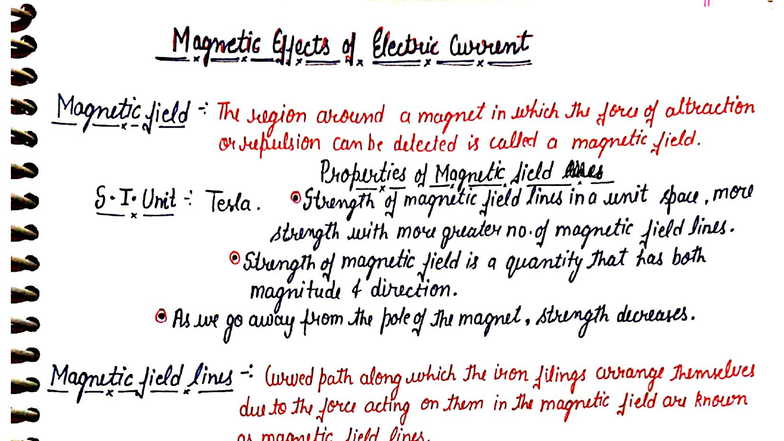 Magnetic Effects of Electric Current
Magnetic field :- The region around a magnet in which the force of attraction
or repulsion can be detected is called a magnetic field.
Properties of Magnetic field
S.I. Unit :- Tesla. Strength of magnetic field lines in a unit space, more
strength with more greater no. of magnetic field lines.
Strength of magnetic field is a quantity that has both
magnitude & direction.
As we go away from the pole of the magnet, strength decreases.
Magnetic field lines -: Curved path along which the iron filings arrange themselves
due to the force acting on them in the magnetic field are known
as magnetic field lines.